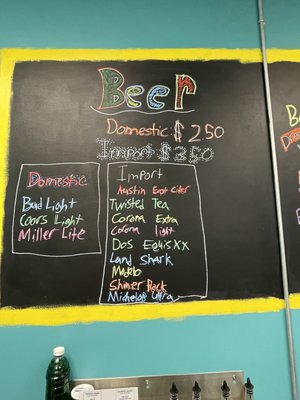 Beer
Domestic $2.50
Import $3.50
Domestic
Bud Light
Coors Light
Miller Lite
Import
Austin East Cider
Twisted Tea
Corona Extra
Corona light
Dos Equis XX
Land Shark
Modelo
Shiner Bock
Michelob Ultra